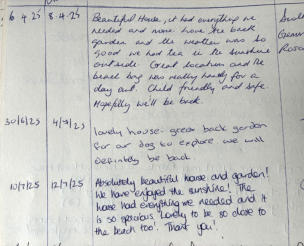 6.4.25 8.4.25 Beautiful House, it had everything we
needed and more. Love the back
garden and the weather was so
good we had tea in the sunshine
outside. Great location and the
beach bag was really handy for a
day out. Child friendly and safe.
Hopefully we'll be back.
30/6/25 Lovely house - great back garden
for our dog to explore we will
definitely be back.
10/7/25 12/7/25 Absolutely beautiful house and garden!
We have enjoyed the sunshine! The
house had everything we needed and it
is so spacious. Lovely to be so close to
the beach too! Thank you!